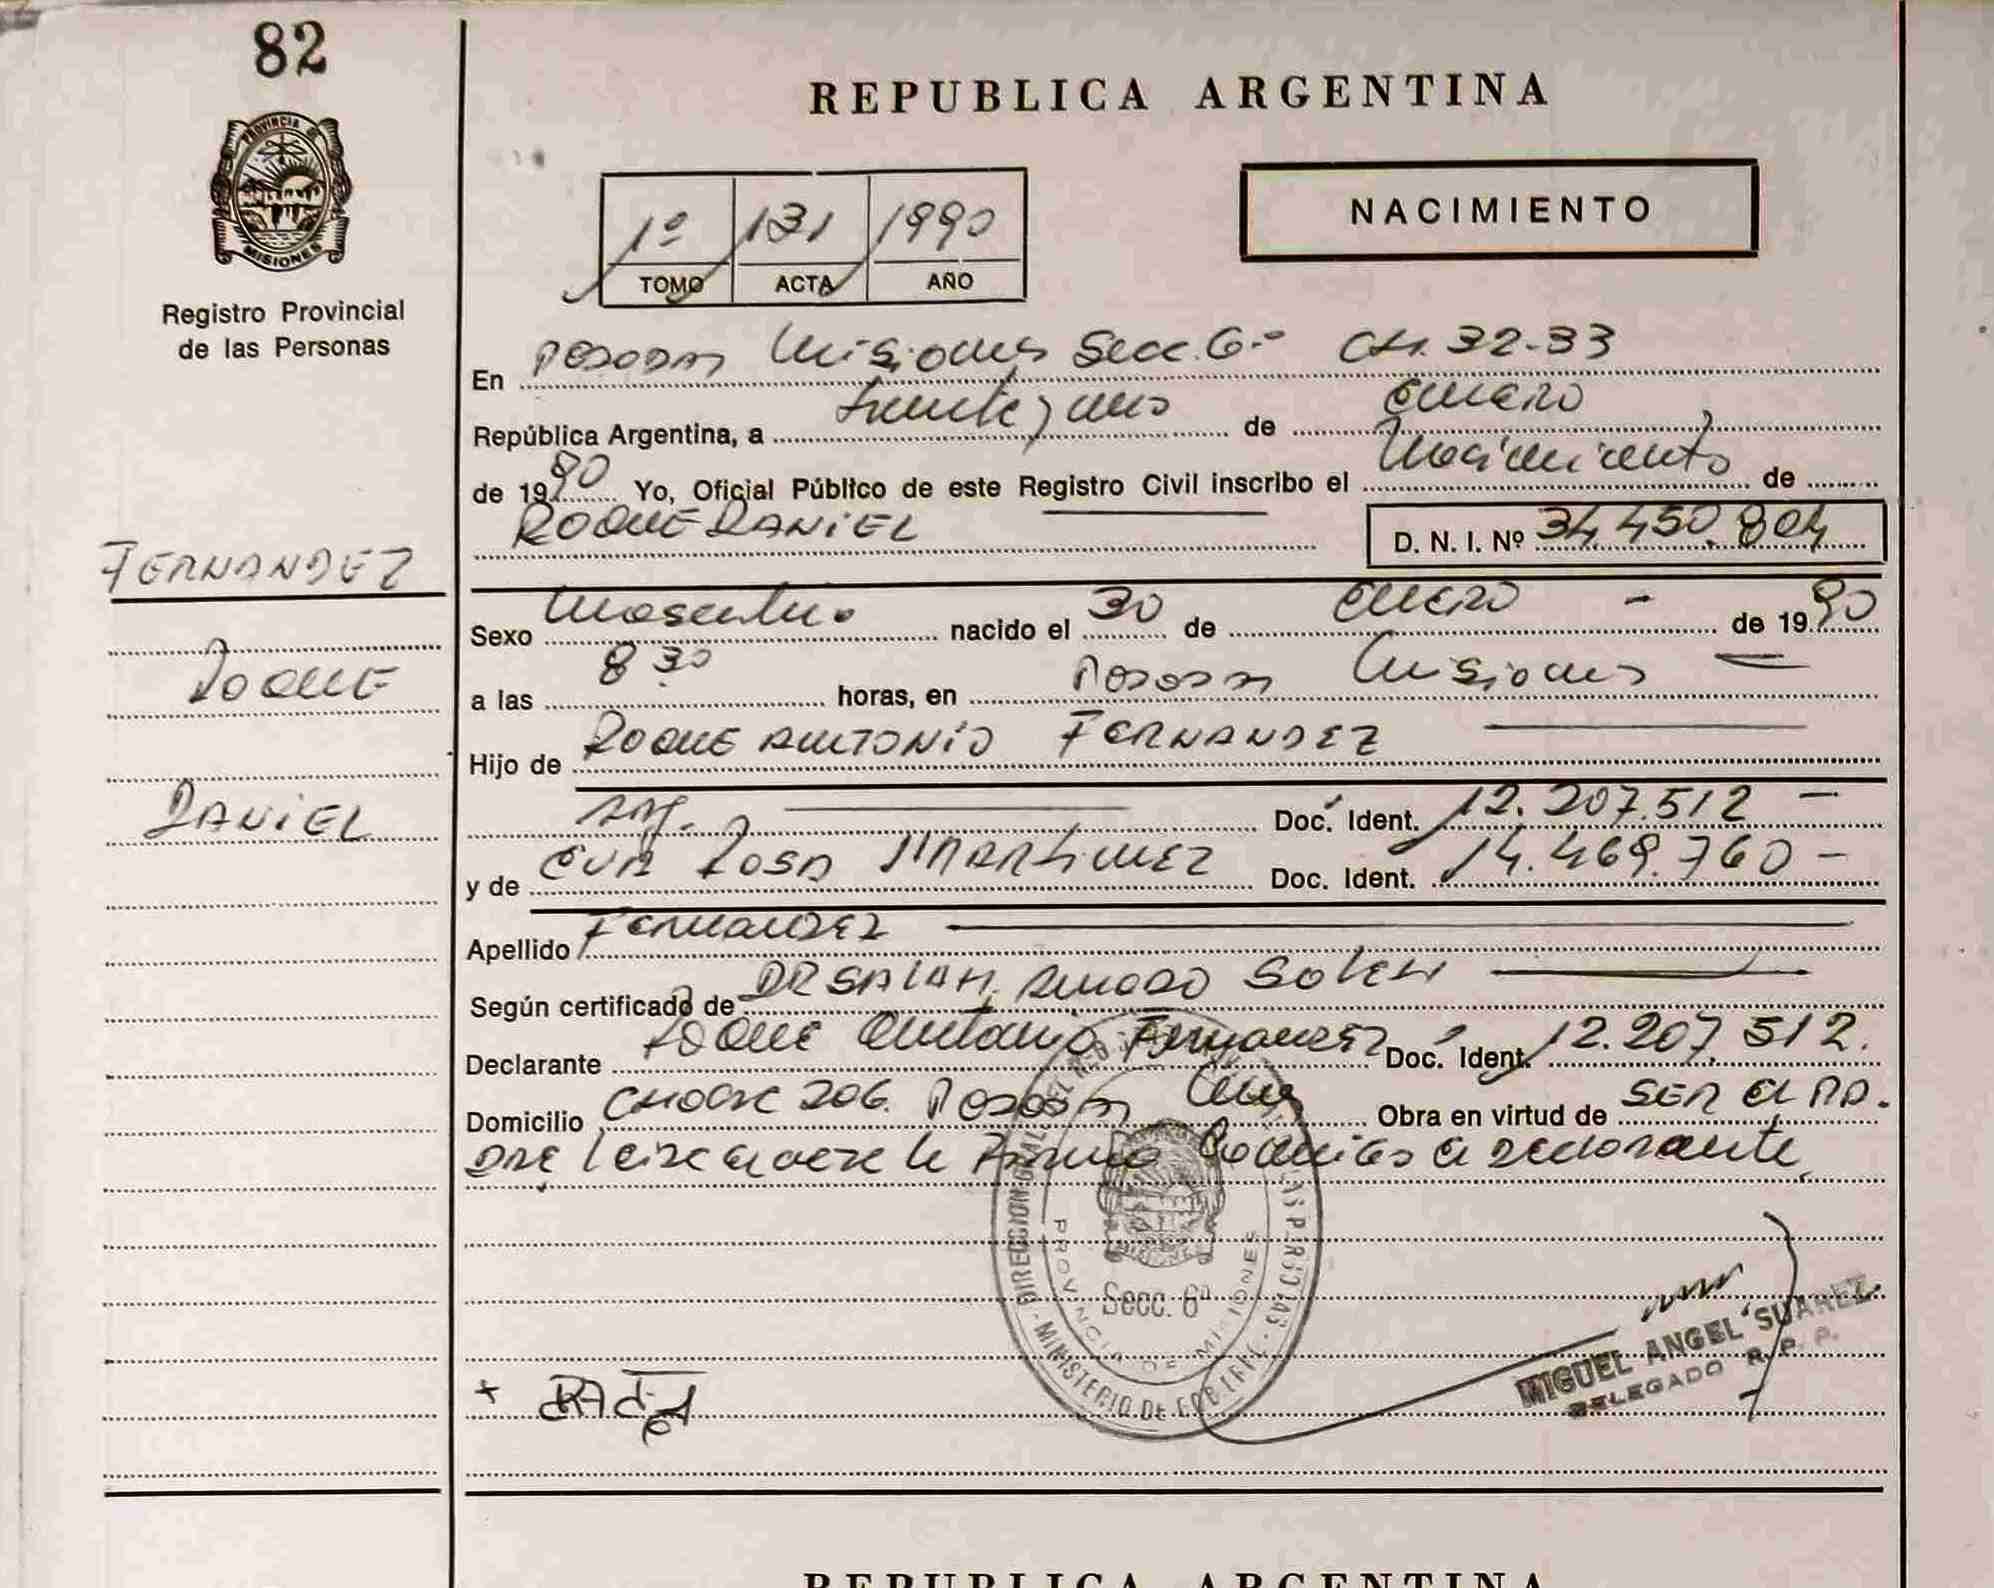 82
REPUBLICA ARGENTINA
PROVINCIA DE
MISIONES
Registro Provincial
de las Personas
NACIMIENTO
1º 131 1990
TOMO ACTA AÑO
En Posadas Misiones Secc. 6ª CH. 32-33
República Argentina, a treinta y uno de Enero
de 1990 Yo, Oficial Público de este Registro Civil inscribo el Nacimiento de
ROQUE DANIEL D. N. I. Nº 34.450.804
FERNANDEZ
ROQUE
DANIEL
Sexo Masculino nacido el 30 de Enero - de 1990
a las 8 30 horas, en Posadas Misiones
Hijo de ROQUE ANTONIO FERNANDEZ
Arg. Doc. Ident. 12.207.512 -
y de EVA ROSA MARTINEZ Doc. Ident. 14.469.760 -
Apellido FERNANDEZ
Según certificado de DR SALAH.
Declarante ROQUE Antonio Fernandez Doc. Ident. 12.207.512.
Domicilio 206. Posadas Obra en virtud de SER el
el acta la firma el declarante
DIRECCION GRAL. DEL REG. DE LAS PERSONAS
PROVINCIA DE MISIONES
Secc. 6ª
MINISTERIO DE GOBIERNO
MIGUEL ANGEL SUAREZ
DELEGADO R. P. P.
REPUBLICA ARGENTINA